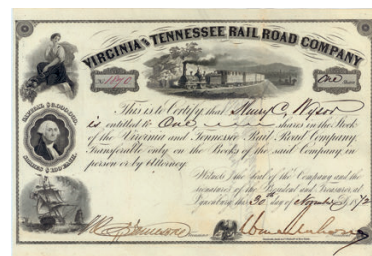 VIRGINIA AND TENNESSEE RAIL ROAD COMPANY
No 1890
One
This is to Certify that Henry C.
is entitled to One shares in the Stock
of the Virginia and Tennessee Rail Road Company,
Transferable only on the Books of the said Company in
person or by Attorney.
Witness the Seal of the Company and the
Signatures of the President and Treasurer at
Lynchburg this 30th day of 1872